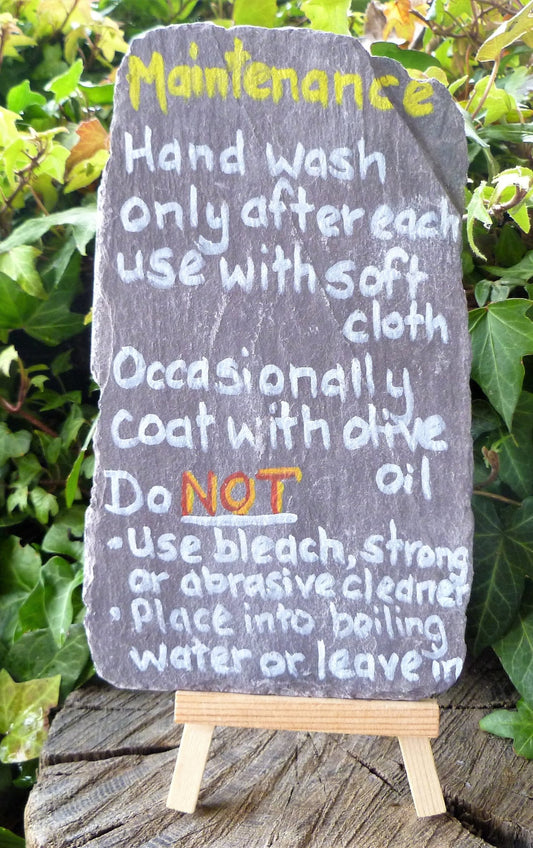 Maintenance
Hand wash
only after each
use with soft
cloth
Occasionally
coat with olive
oil
Do NOT
• Use bleach, strong
or abrasive cleaner
• Place into boiling
water or leave in